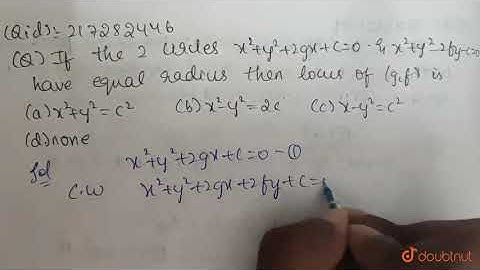 (Qid):- 217282446
(Q) If the 2 circles x²+y²+2gx+c=0 & x²+y²-2fy-c=0
have equal radius then locus of (g,f) is
(a) x²+y²=c² (b) x²-y²=2c (c) x-y²=c²
(d) none
Sol x²+y²+2gx+c=0 - ①
C.W x²+y²+2gx+2fy+c=
doubtnut